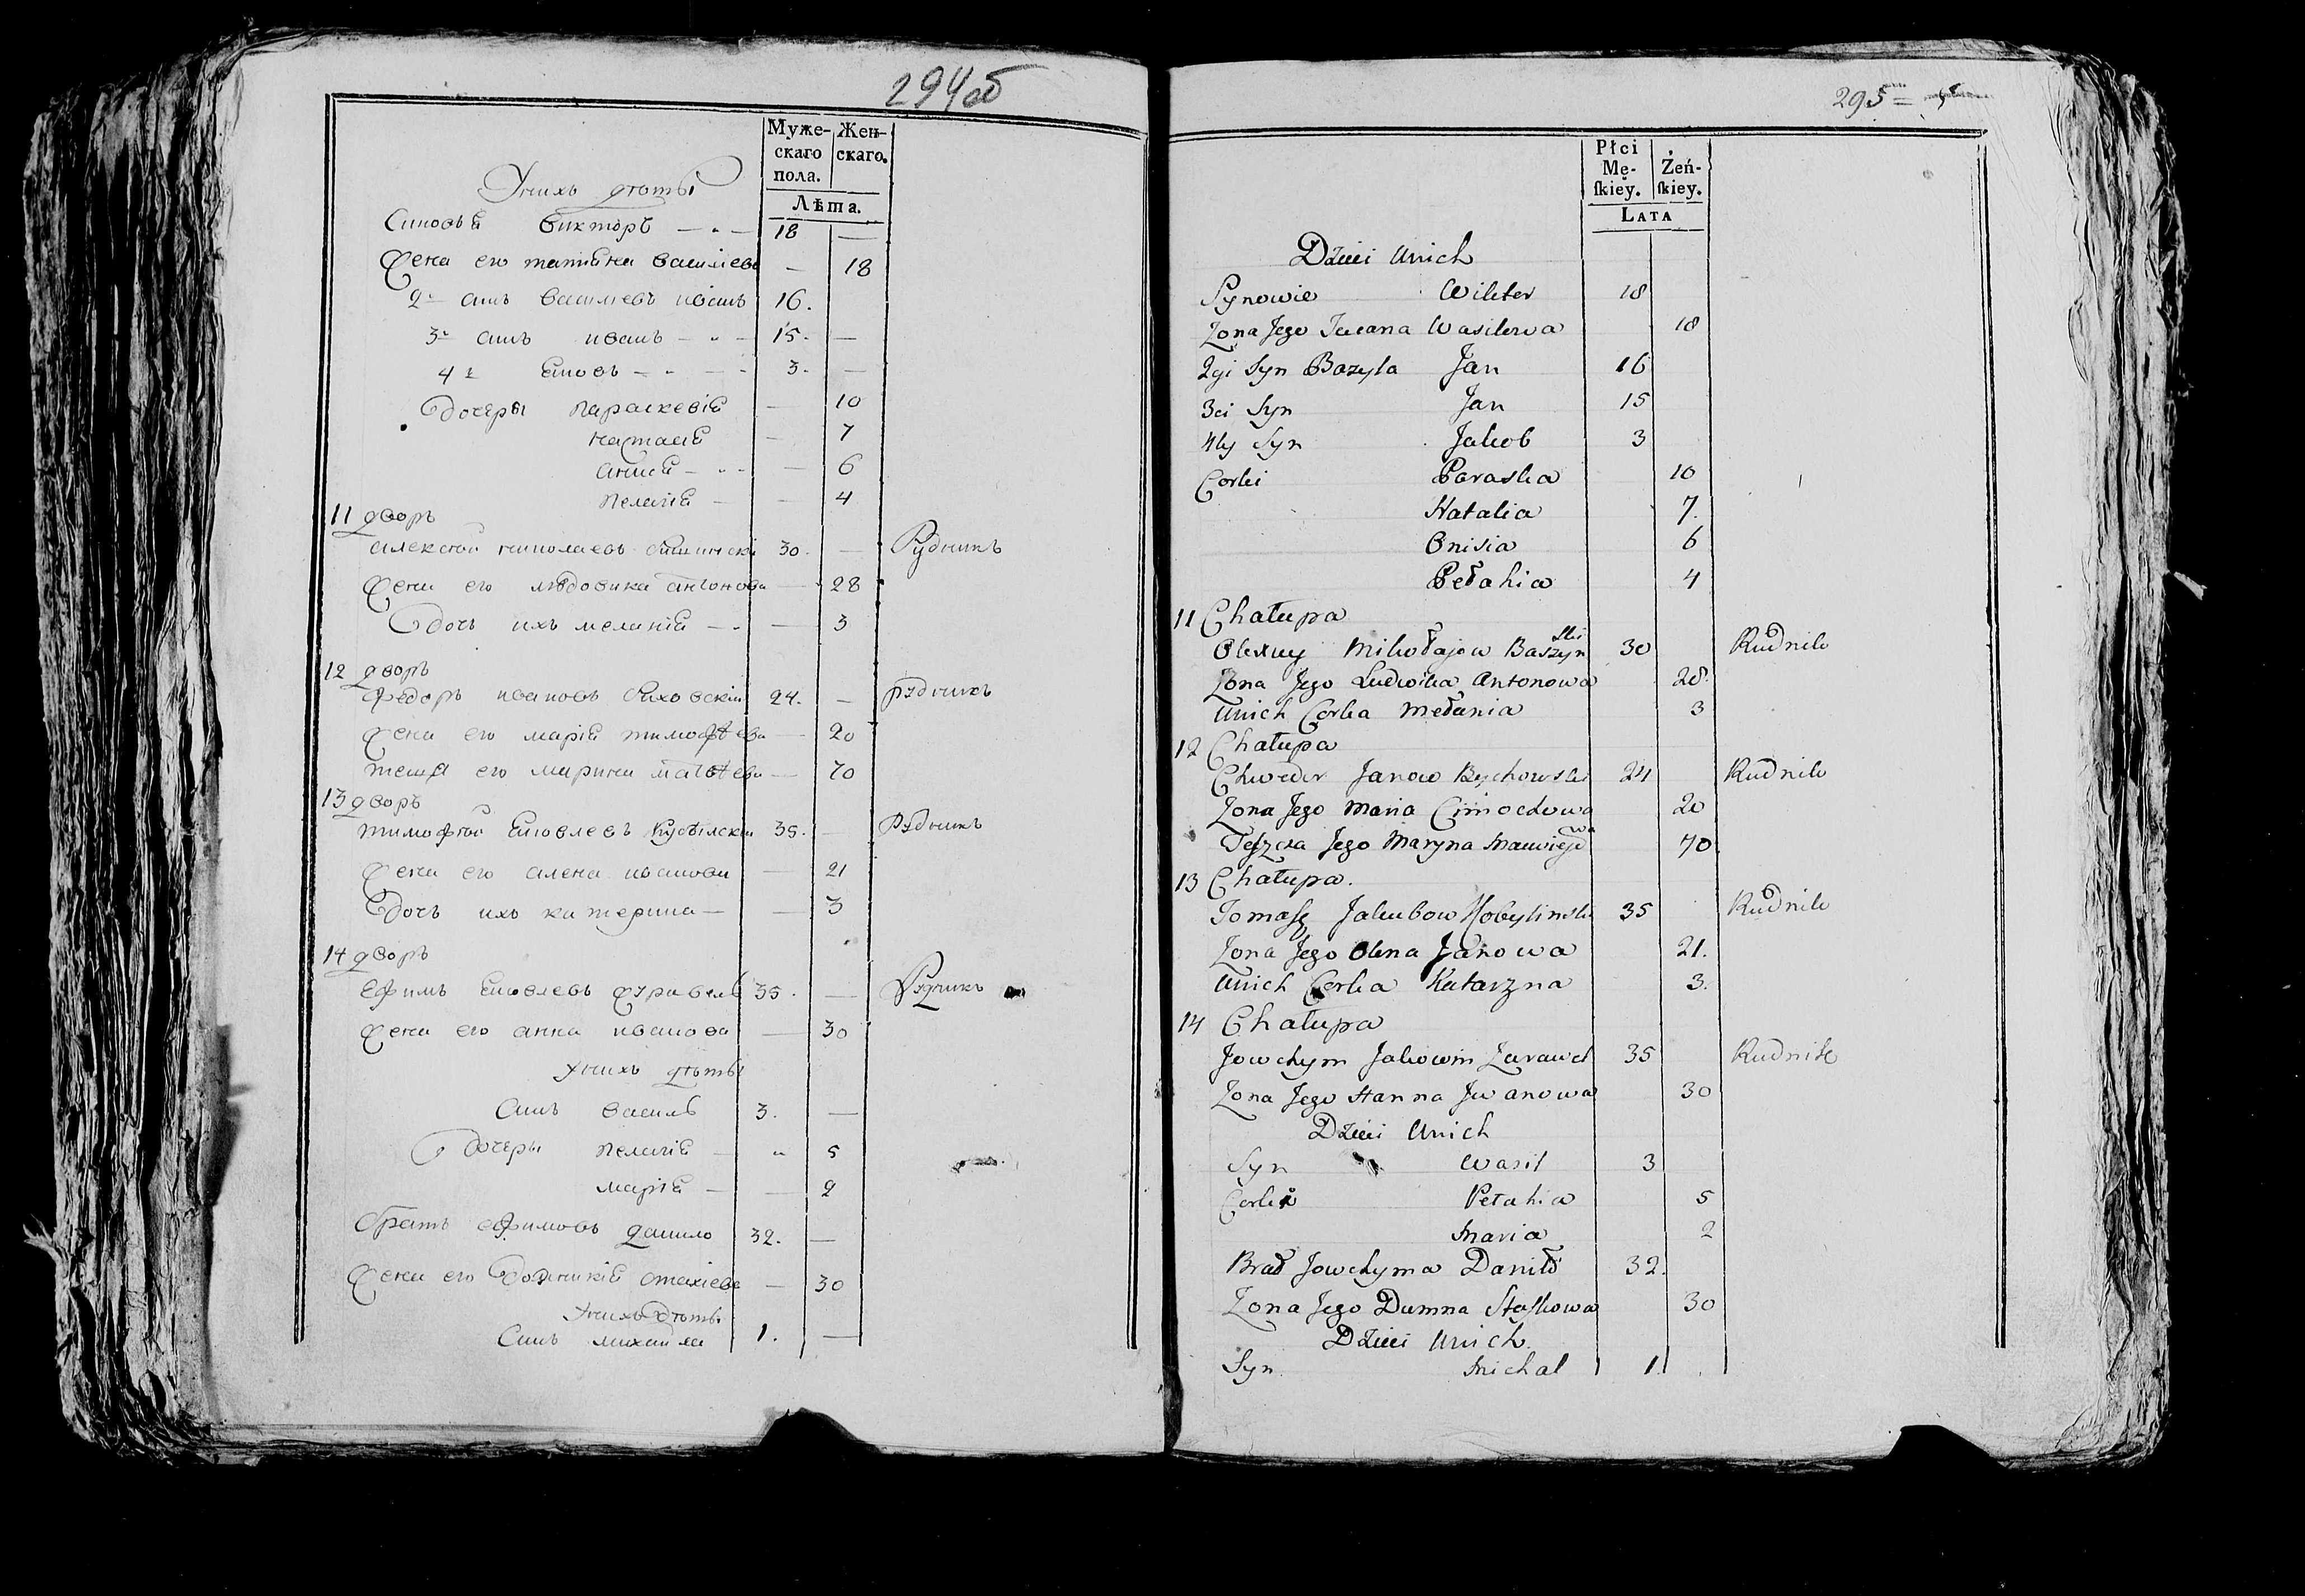 294об
Муже- Жен-
скаго скаго.
пола.
Лѣта.
Унихъ дѣты
Синовья Викторъ 18 —
Жена его татяна василева — 18
2й синъ василевъ иванъ 16.
3й синъ иванъ 15. —
4й яковъ 3. —
Дочеры параскевія — 10
наталія — 7
анисія — 6
пелагія — 4
11 дворъ
алексѣй николаевъ 30. — Рудникъ
Жена его людовика антонова — 28
Дочъ ихъ меланія — 3
12 дворъ
Федоръ ивановъ биховскій 24. — рудникъ
Жена его марія тимофѣева — 20
теща его марина матвѣева — 70
13 дворъ
тимофѣй яковлевъ 35. — Рудникъ
Жена его алена иванова — 21
Дочъ ихъ катерина — 3
14 дворъ
Ефимъ яковлевъ журавель 35. — Рудникъ
Жена его анна иванова — 30
Унихъ дѣты
Синъ василь 3. —
Дочеры пелагія — 5
марія — 2
братъ ефимовъ данило 32. —
Жена его 30
Унихъ дѣты
Синъ михайла 1. —
295
Płci
Mę- Żeń-
ſkiéy. ſkiey.
LATA
Dzieci Unich
Synowie Wikter 18
Zona Jego Taciana Wasilewa 18
2gi Syn Bazyla Jan 16
3ci Syn Jan 15
4ty Syn Jakob 3
Corki Paraska 10
Natalia 7.
Onisia 6
Pełahia 4
11 Chałupa
Olexiey Mikołajow Baszynski 30 Rudnik
Zona Jego Ludwika Antonowa 28.
Unich Corka Mełania 3
12 Chałupa
Chwedor Janow Bychowski 24 Rudnik
Zona Jego Maria Cimochowa 20
Teſzcza Jego Maryna Matwiejewa 70.
13 Chałupa.
Tomaſz Jakubow Kobylinski 35 Rudnik
Zona Jego Olena Janowa 21.
Unich Corka Katarzna 3.
14 Chałupa
Jowchym Jakowin Zurawel 35 Rudnik
Zona Jego Hanna Jwanowa 30
Dzieci Unich
Syn Wasil 3
Corki Petahia 5
Maria 2
Brat Jowchyma Daniło 32.
Zona Jego Dumna Staſkowa 30
Dzieci Unich.
Syn Michal 1